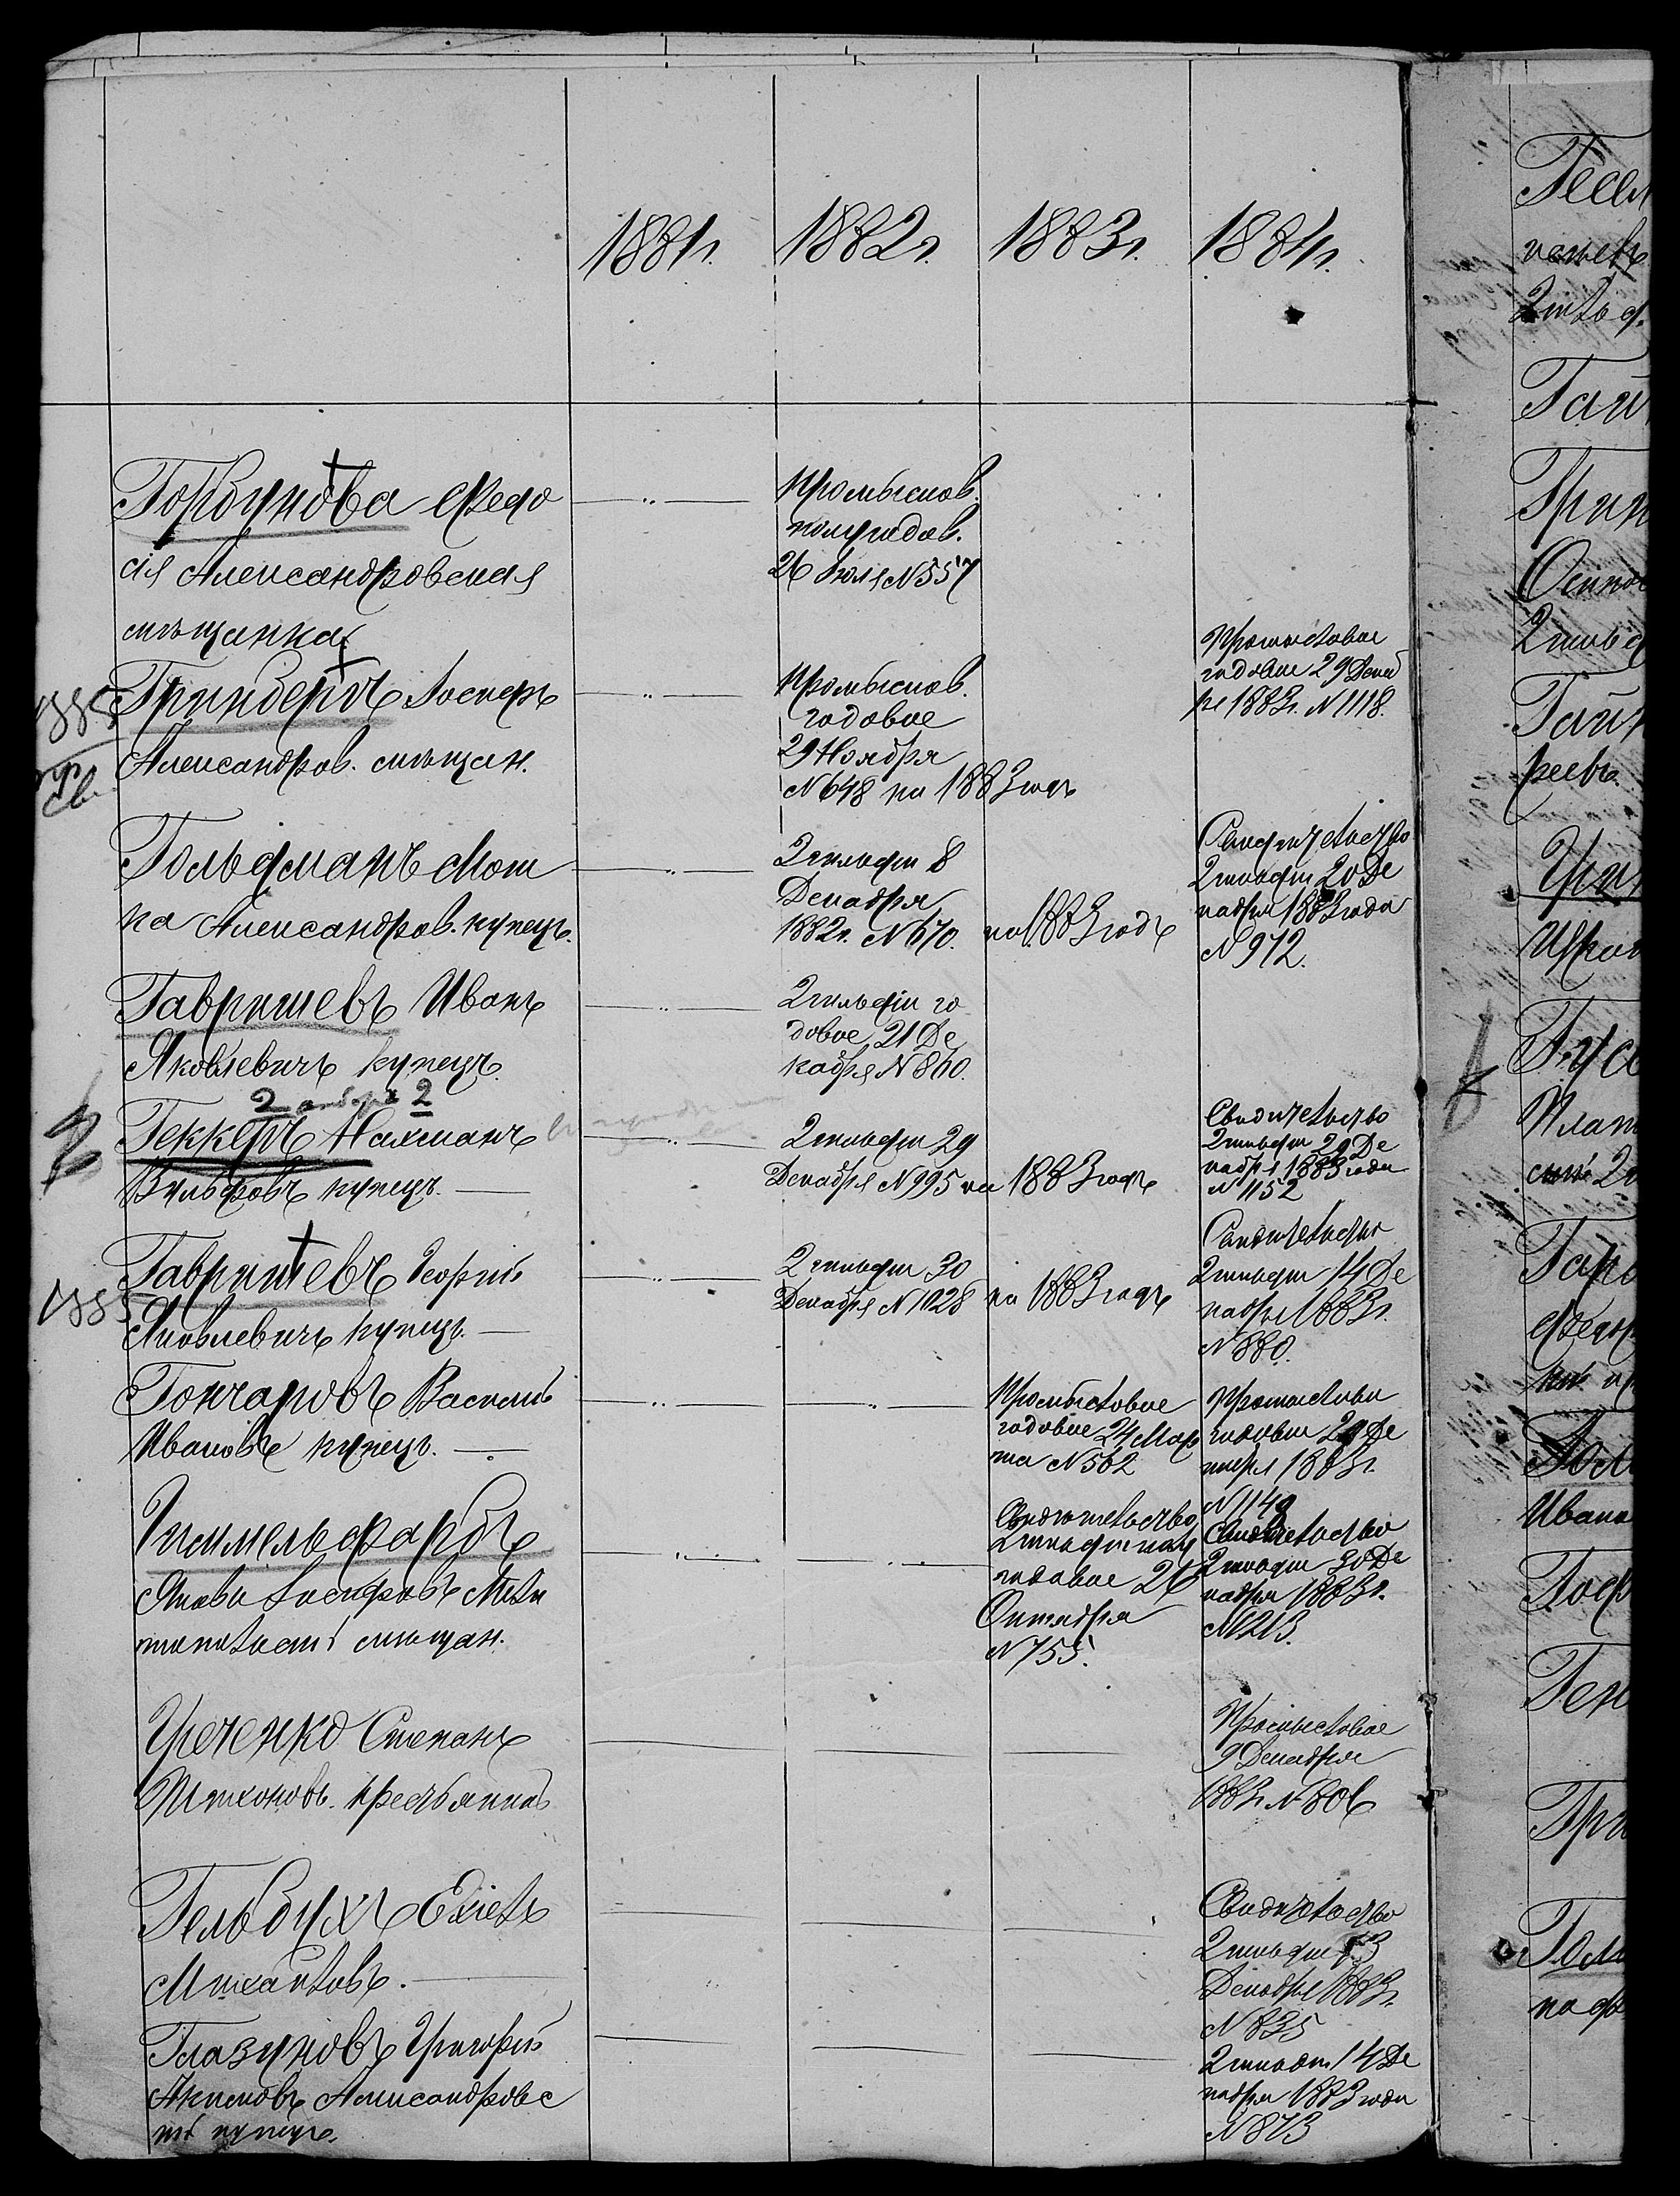 1881г. 1882г. 1883г. 1884г.
Горбунова Ѳедо
сія Александровская
мѣщанка
Промыслов.
полугодов.
26 Іюля N557
1885
Св.
Гринбергъ Іосифъ
Александров. мѣщан.
Промыслов.
годовое
29 Ноября
N648 на 1883 годъ
Промысловое
годовое 29 Декаб
ря 1883г. N1118.
Гольдманъ Мош
ка Александров. купецъ.
2 гильдіи 8
Декабря
1882г. N670. на 1883 годъ
Свидѣтельство
2 гильдіи 20 Де
кабря 1883 года
N972.
Гавришевъ Иванъ
Яковлевичъ купецъ.
2 гильдіи го
довое 21 Де
кабря N860.
2 2
Геккеръ Нахманъ
Вульфовъ купецъ.
2 гильдіи 29
Декабря N995 на 1883 годъ
Свидѣтельство
2 гильдіи 29 Де
кабря 1883 года
N1152
1885
Гавришевъ Георгій
Яковлевичъ купецъ.
2 гильдіи 30
Декабря N1028 на 1883 годъ
Свидѣтельство
2 гильдіи 14 Де
кабря 1883г.
N880.
Гончаровъ Василій
Ивановъ купецъ.
Промысловое
годовое 24 Мар
та N562
Промысловое
годовое 29 Де
кабря 1883г.
N1149
Гиммельфарбъ
Яковъ Іосифовъ Мели
топольскій мѣщан.
Свидѣтельство
2 гильдіи полу
годовое 26
Октября
N755.
Свидѣтельство
2 гильдіи 30 Де
кабря 1883г.
N1213.
Греченко Степанъ
Тихоновъ. крестьянинъ
Промысловое
9 Декабря
1883г. N806
Гельбухъ Ехіель
Михайловъ.
Свидѣтельство
2 гильдіи 13
Декабря 1883г.
N835
Глазуновъ Григорій
Акимовъ Александровс
кій купецъ.
2 гильдіи 14 Де
кабря 1883 года
N873
2
Гай
Грин
Осипов
Гай
Гусе
Плат
Гри
Ивано
Ген